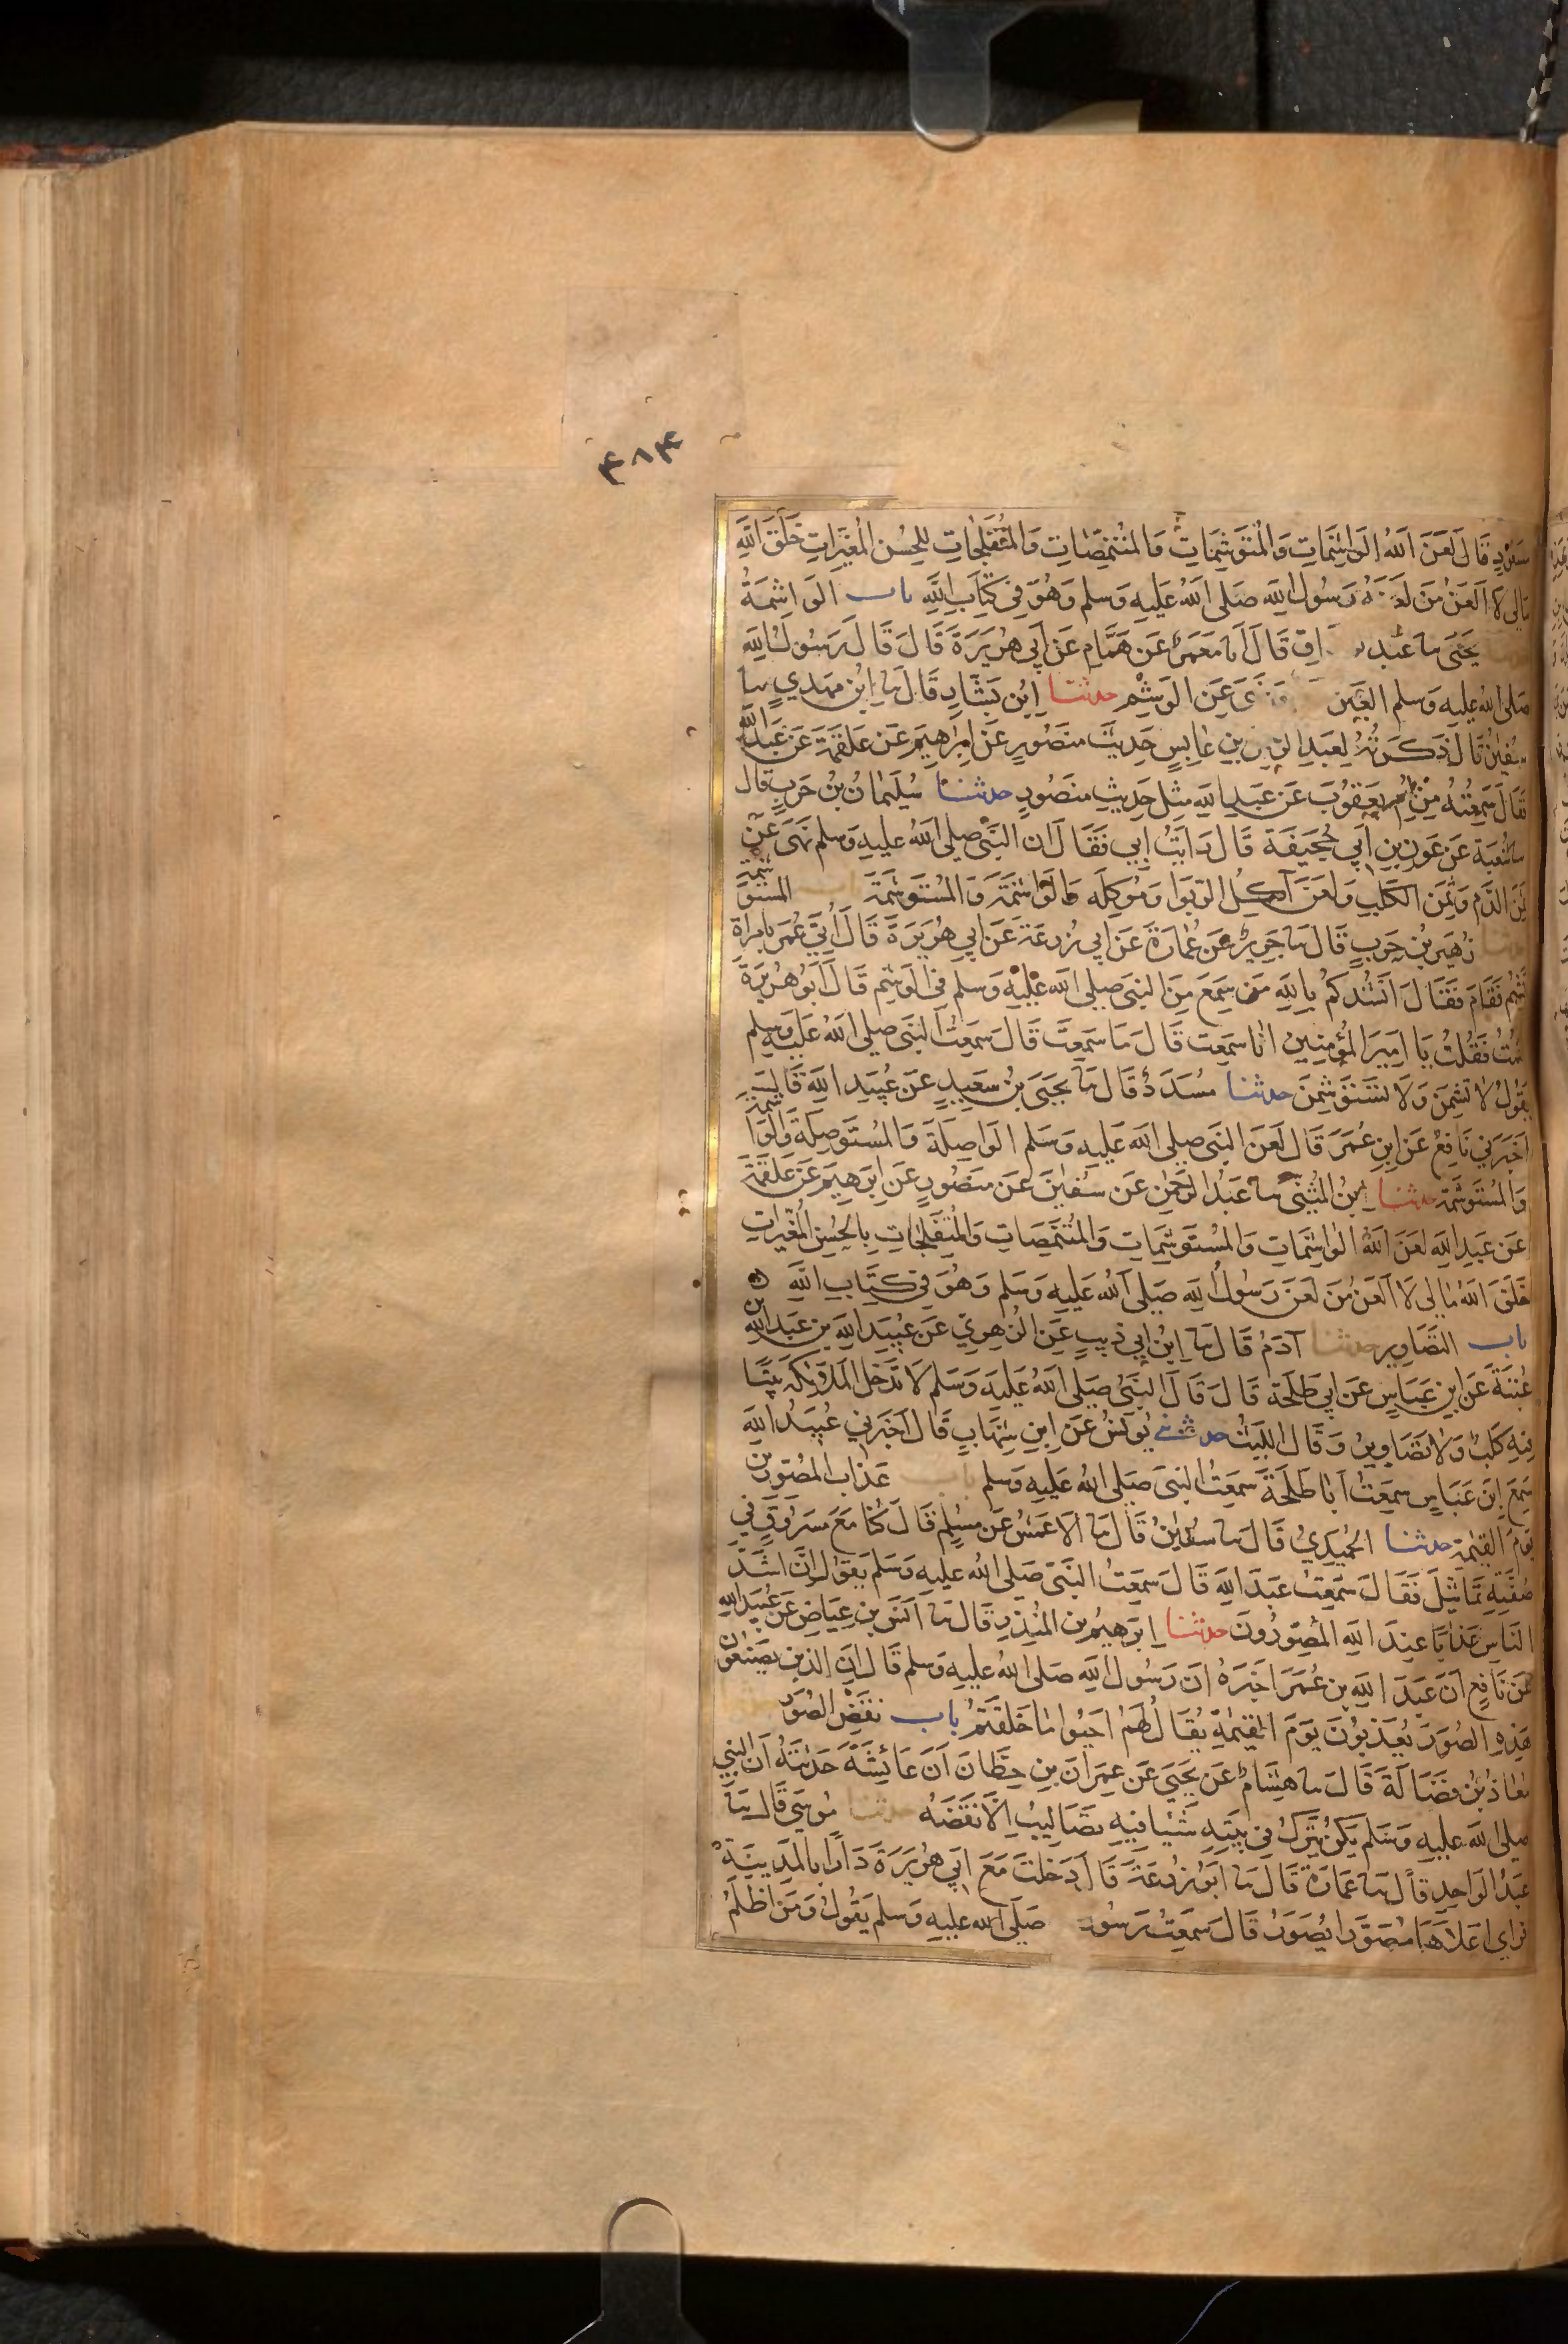 ۴۸۴
قَالَ لَعَنَ اللهُ الوَاشِمَاتِ وَالمُتَوَشِّمَاتِ وَالمُتَنَمِّصَاتِ وَالمُتَفَلِّجَاتِ لِلحُسنِ المُغَيِّرَاتِ خَلَقَ اللهِ
مَالِي لَا اَلعَنُ مَن لَعَنَهُ رَسُولُ اللهِ صَلى اللهُ عَلَيهِ وَسلم وَهُوَ فِي كِتَابِ اللهِ باب الوَاشِمَةُ
يَحيَى نا عَبد اقِ قَالَ انا مَعمَرٌ عَن هَمَّامٍ عَن اَبِي هُرَيرَةَ قَالَ قَالَ رَسُولُ اللهِ
صَلى اللهُ عليهِ وَسلم العَين وَنَهَى عَنِ الوَشمِ حدثنا اِبن بَشَّارٍ قَالَ نا اِبن مَهدِيٍ نا
سُفين قَالَ ذَكَرتُهُ لِعَبدِ الرحمن بنِ عَابِسٍ حَدِيثَ مَنصُورٍ عَن اِبرَاهِيمَ عَن عَلقَمَةَ عَن عَبدِ اللهِ
فَقَالَ سَمِعتُهُ مِن اُم يَعقُوبَ عَن عَبدِ اللهِ مِثل حَدِيثِ مَنصُورٍ حدثنا سُلَيمَانُ بنُ حَربٍ قَال
نا شُعبَة عَن عَونِ بنِ اَبِي جُحَيفَةَ قَالَ رَاَيتُ اَبِي فَقَالَ ان النَّبِيَّ صلى اللهُ عليهِ وَسلم نَهَى عَن
ثَمَنِ الدَّمِ وَثَمَنِ الكَلبِ وَلَعَنَ آكِلَ الرِّبوَا وَمُوكِلَه وَالوَاشِمَةَ وَالمُستَوشِمَةَ باب المُستَوشِمَة
حدثنا زُهَيرُ بنُ حَربٍ قَالَ نا جَرِيرٌ عَن عُمَارَةَ عَن اَبِي زُرعَةَ عَن اَبِي هُرَيرَةَ قَالَ اُتِيَ عُمَرُ بِامرَاةٍ
تَشِمُ فَقَامَ فَقَالَ اَنشُدُكُم بِاللهِ مَن سَمِعَ مِنَ النَّبِيِّ صلى اللهُ عَلَيهِ وَسلم فِي الوَشمِ قَالَ اَبُو هُرَيرَةَ
قُمتُ فَقُلتُ يَا اَمِيرَ المُؤمِنِين انَا سَمِعت قَالَ مَا سَمِعتَ قَالَ سَمِعتُ النَّبِيَّ صلى اللهُ عَلَيهِ وَسلم
يَقُولُ لَا تَشِمنَ وَلَا تستَوشِمنَ حدثنا مُسَدَّدٌ قَالَ نا يَحيَى بنُ سَعِيدٍ عَن عُبَيدِ اللهِ قَالَ
اَخبَرَنِي نَافِعٌ عَن ابنِ عُمَرَ قَالَ لَعَنَ النَّبِيُّ صلى اللهُ عَلَيهِ وَسَلم الوَاصِلَةَ وَالمُستَوصِلَةَ وَالوَاشِمَةَ
وَالمُستَوشِمَةَ حدثنا ابنُ المُثَنَّى نا عَبدُ الرَّحمٰنِ عَن سُفيٰنَ عَن مَنصُورٍ عَن اِبرَهِيمَ عَن عَلقَمَةَ
عَن عَبدِ اللهِ لَعَنَ اللهُ الوَاشِمَاتِ وَالمُستَوشِمَاتِ وَالمُتَنَمِّصَاتِ وَالمُتَفَلِّجَاتِ بِالحُسنِ المُغَيِّرَاتِ
خَلَقَ اللهِ مَا لِي لَا اَلعَنُ مَن لَعَنَ رَسُولُ اللهِ صَلى اللهُ عَلَيهِ وَسَلم وَهُوَ فِي كِتَابِ اللهِ
باب التَّصَاوِيرِ حدثنا آدَمُ قَالَ نا ابنُ اَبِي ذِيبٍ عَنِ الزهرِيِّ عَن عُبَيدِ اللهِ بن عَبدِ اللهِ بن
عُتبَةَ عَنِ ابنِ عَبَّاسٍ عَن اَبِي طَلحَةَ قَالَ قَالَ النَّبِيُّ صَلى اللهُ عَلَيهِ وَسَلم لَا تَدخُلُ المَلٰئِكَةُ بَيتًا
فِيهِ كَلبٌ وَلَا تَصَاوِيرُ وَقَالَ اللَّيثُ حدثني يُونُسُ عَنِ ابنِ شِهَابٍ قَالَ اَخبَرَنِي عُبَيدُ اللهِ
سَمِعَ ابنَ عَبَّاسٍ سَمِعتُ اَبَا طَلحَةَ سَمِعتُ النَّبِيَّ صَلى اللهُ عَلَيهِ وَسلم باب عَذَابِ المُصَوِّرِينَ
يَومَ القِيٰمَةِ حدثنا الحُمَيدِيُّ قَالَ نا سُفيٰنُ قَالَ نا الاَعمَشُ عَن مُسلِمٍ قَالَ كُنَّا مَعَ مَسرُوقٍ فِي
صُفَّتِهِ تَمَاثِيلَ فَقَالَ سَمِعتُ عَبدَ اللهِ قَالَ سَمِعتُ النَّبِيَّ صَلى اللهُ عليهِ وَسَلم يَقُولُ اِنَّ اَشَدَّ
النَّاسِ عَذَابًا عِندَ اللهِ المُصَوِّرُونَ حدثنا اِبرَهِيمُ بن المُنذِرِ قَالَ نا اَنَسُ بن عِيَاضٍ عَن عُبَيدِ اللهِ
عَن نَافِعٍ اَنَّ عَبدَ اللهِ بن عُمَرَ اَخبَرَهُ ان رَسُولَ اللهِ صَلى اللهُ عليهِ وَسلم قَالَ اِنَّ الذين يَصنَعُون
هَذِهِ الصُّوَرَ يُعَذَّبُونَ يَومَ القِيٰمَةِ يُقَالُ لَهُم اَحيُوا مَا خَلَقتُم باب نَقضِ الصُّوَرِ
مُعَاذُ بنُ فَضَالَةَ قَالَ نا هِشَامٌ عَن يَحيَى عَن عِمرَانَ بنِ حِطَّانَ اَنَّ عَائِشَةَ حَدَّثَتهُ اَنَّ النبي
صلى الله عليهِ وَسَلم يَكُن يَترُكُ فِي بَيتِهِ شَيئًا فِيهِ تَصَالِيبُ اِلَّا نَقَضَهُ حدثنا مُوسَى قَالَ نا
عَبدُ الوَاحِدِ قَالَ نا عُمَارَةُ قَالَ نا اَبُو زُرعَةَ قَالَ دَخَلتُ مَعَ اَبِي هُرَيرَةَ دَارًا بِالمَدِينَةِ
فراى اَعلَاهَا مُصَوِّرًا يُصَوِّرُ قَالَ سَمِعتُ رَسُول صَلَى الله عليهِ وَسلم يَقُولُ وَمَن اَظلَمُ